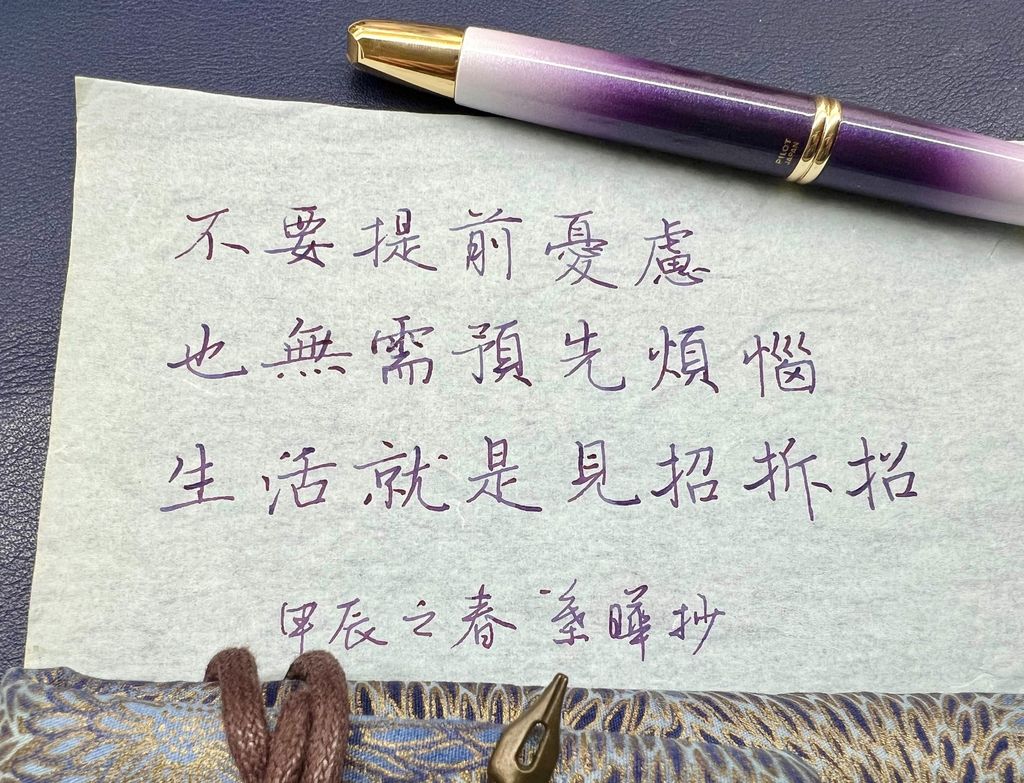 PILOT
JAPAN
不要提前憂慮
也無需預先煩惱
生活就是見招拆招
甲辰之春 曄抄